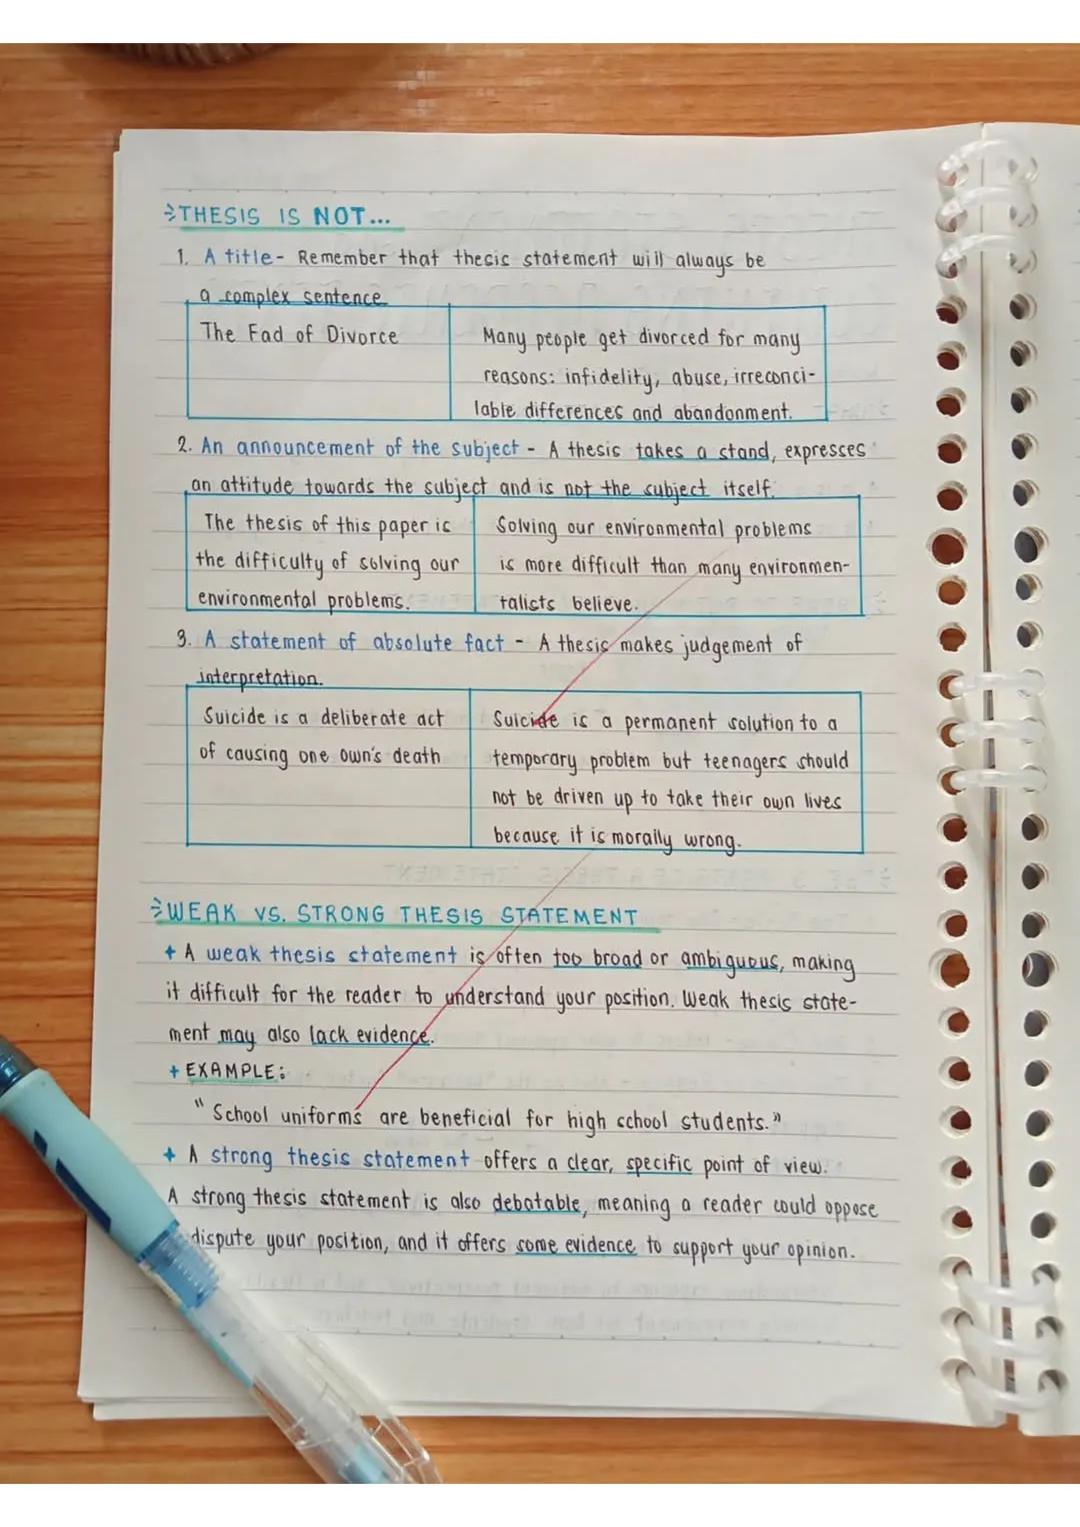 THESIS IS NOT...
1. A title - Remember that thesis statement will always be
a complex sentence
The Fad of Divorce
Many people get divorced for many
reasons: infidelity, abuse, irreconci-
lable differences and abandonment.
2. An announcement of the subject - A thesis takes a stand, expresses
an attitude towards the subject and is not the subject itself.
The thesis of this paper is
the difficulty of solving our
environmental problems.
Solving our environmental problems
is more difficult than many environmen-
talists believe.
3. A statement of absolute fact - A thesis makes judgement of
interpretation.
Suicide is a deliberate act
of causing one own's death
Suicide is a permanent solution to a
temporary problem but teenagers should
not be driven up to take their own lives
because it is morally wrong.
WEAK VS. STRONG THESIS STATEMENT
+ A weak thesis statement is often too broad or ambiguous, making
it difficult for the reader to understand your position. Weak thesis state-
ment may also lack evidence.
+ EXAMPLE:
"School uniforms are beneficial for high school students."
+ A strong thesis statement offers a clear, specific point of view.
A strong thesis statement is also debatable, meaning a reader could oppose
dispute your position, and it offers some evidence to support your opinion.